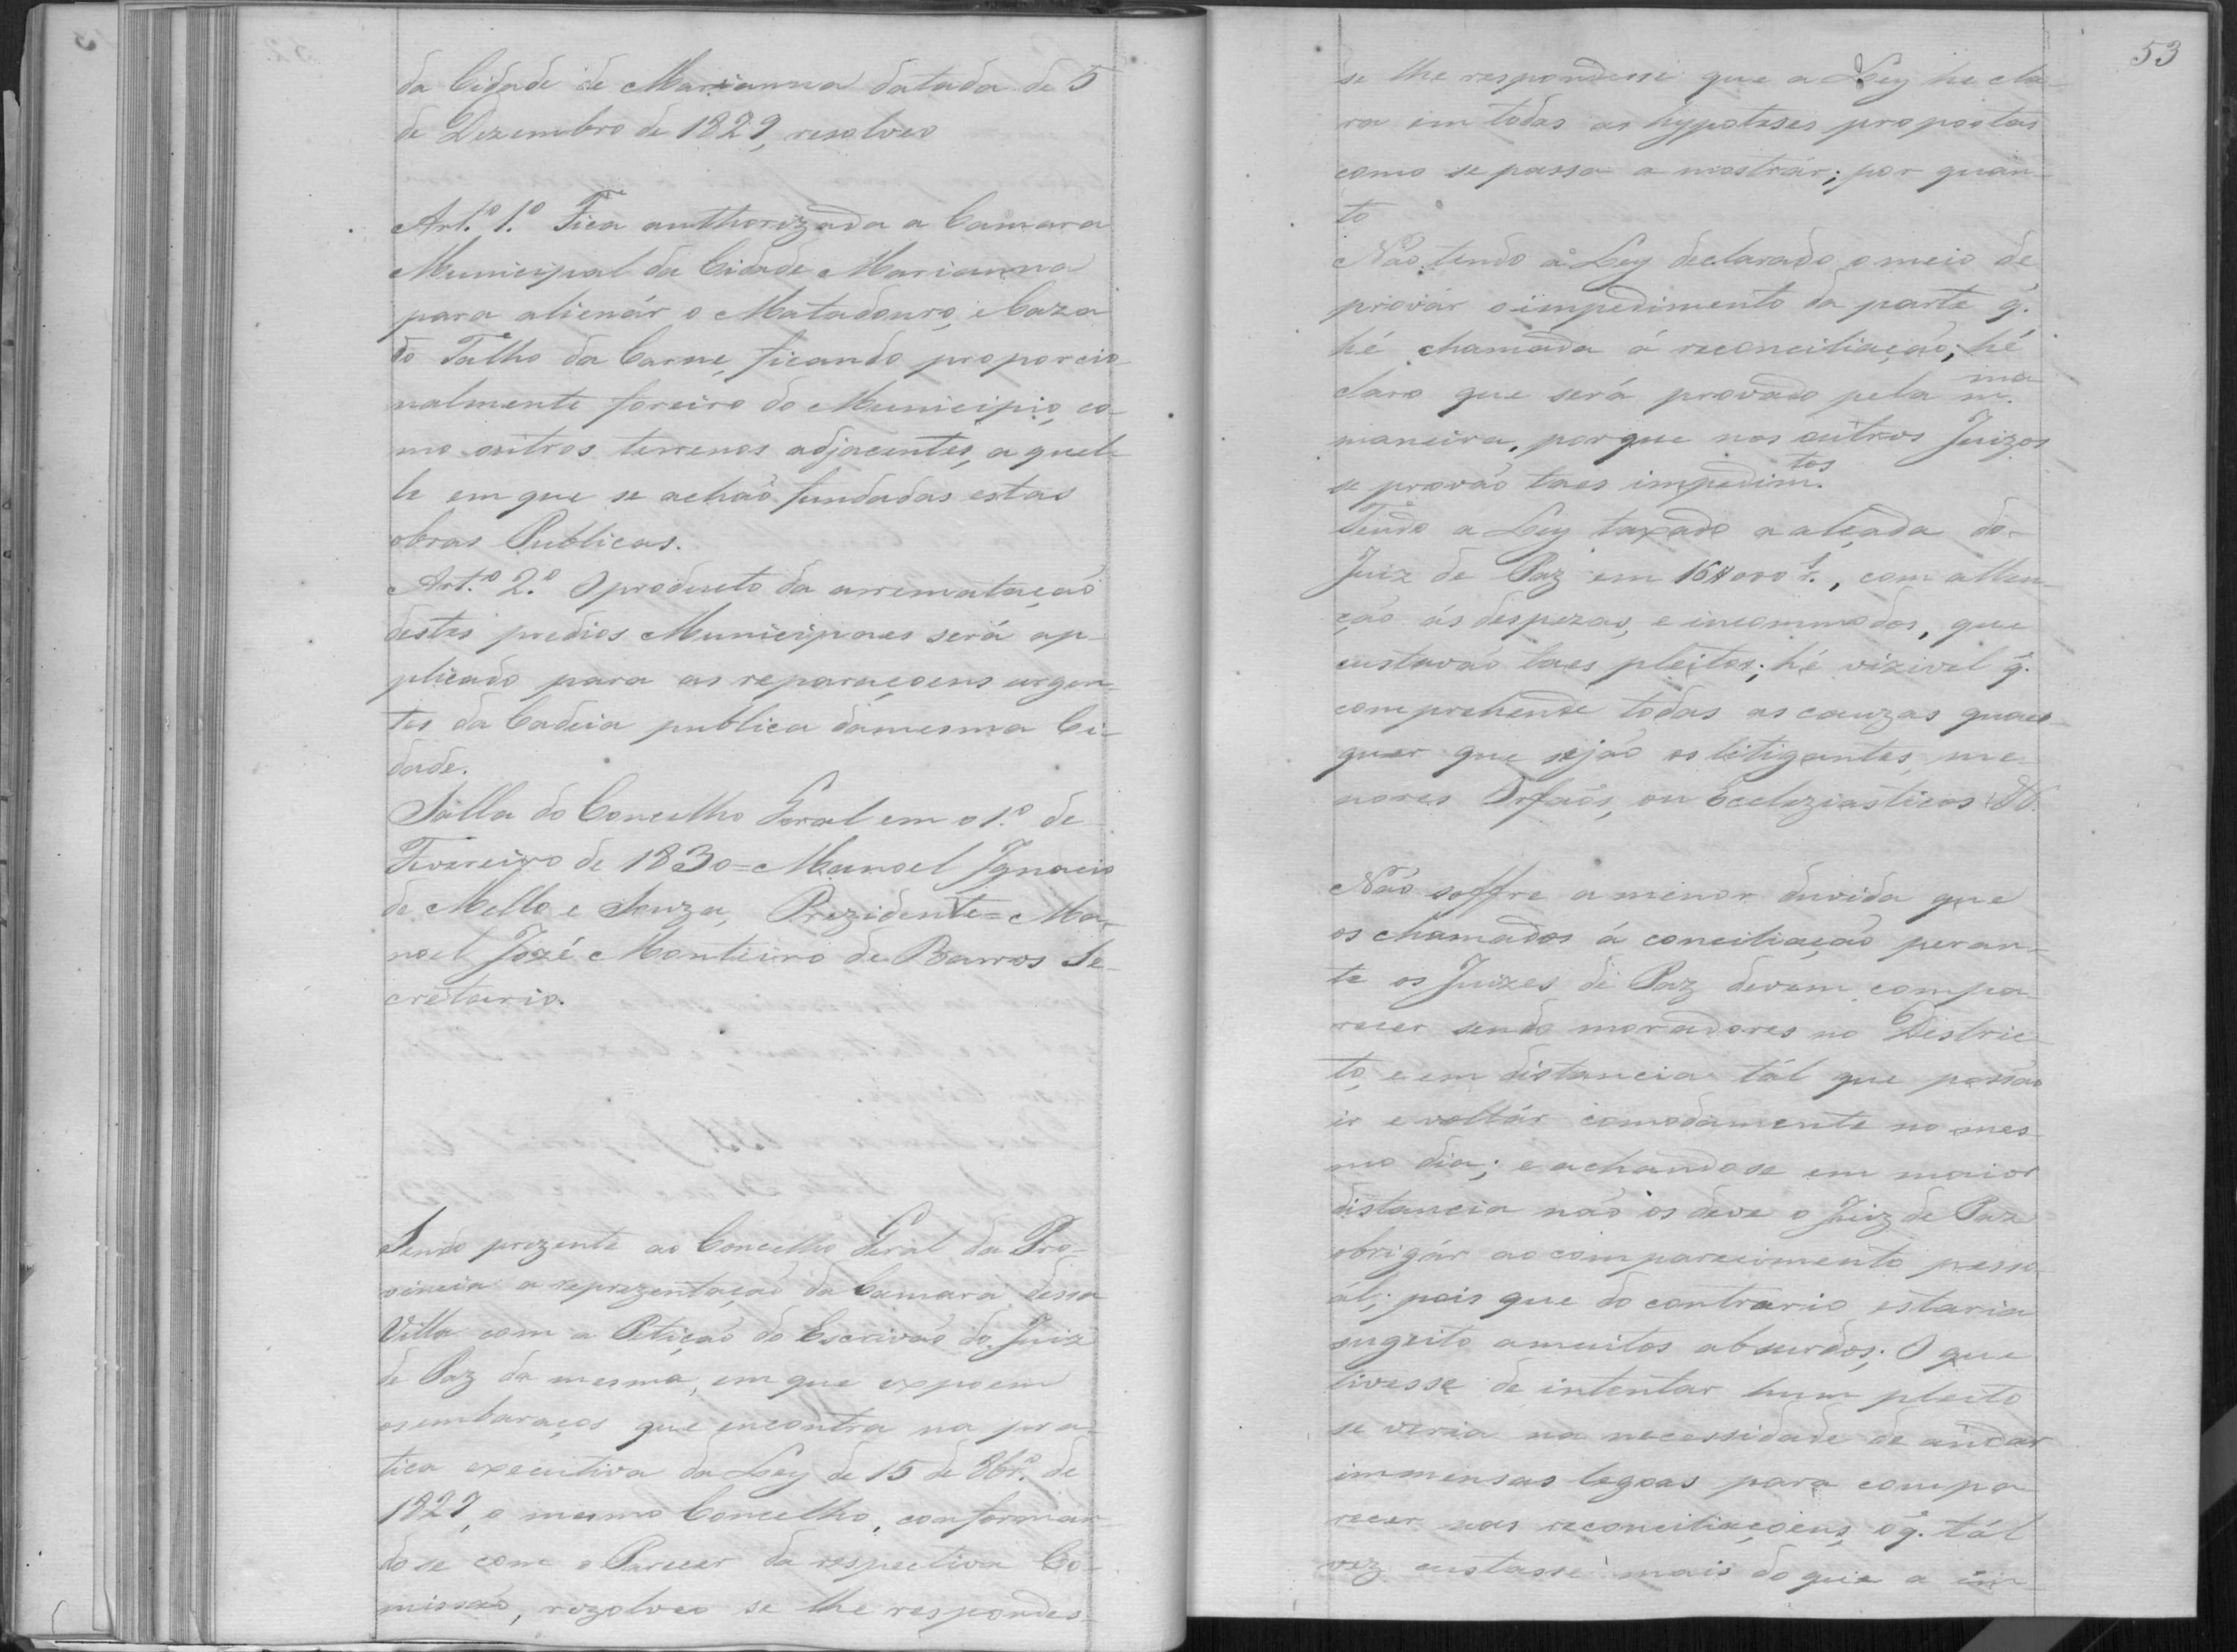 da Cidade de Marianna datada de 5
de Dezembro de 1829, resolveo
Art.º 1.º Fica authorizada a Camara
Municipal da Cidade Marianna
para alienár o Matadouro, e Caza
do Talho da Carne, ficando proporcio-
nalmente foreiro do Municipio, co-
mo outros terrenos adjacentes, a quel-
le em que se achaõ fundadas estas
obras Publicas.
Art.º 2.º O producto da arremataçaõ
destes predios Municipaes será ap-
plicado para as reparaçoens urgen-
tes da Cadeia publica damesma Ci-
dade.
Salla do Concelho Geral em o 1.º de
Fevereiro de 1830 = Manoel Ignacio
de Mello e Souza, Prezidente = Ma-
noel Jozé Monteiro de Barros Se-
cretario.
Sendo prezente ao Concelho Geral da Pro-
vincia a reprezentaçaõ da Camara dessa
Villa com a Petiçaõ do Escrivaõ do Juiz
de Paz da mesma, em que expoem
os embaraços que encontra na pra-
tica executiva da Ley de 15 de 8br.º de
1827, o mesmo Concelho, conforman-
do se com o Parecer da respectiva Co-
missaõ, rezolveo se lhe respondes-
53
se lhe respondesse que a Ley he cla-
ra em todas as hypoteses propostas
como se passa a mostrár; por quan-
to
Naõ tendo a Ley declarado o meio de
provár o impedimento da parte q.
hé chamada á reconciliaçaõ, hé
claro que será provado pela m.ma
maneira, porque nos outros Juizos
se provaõ taes impedim.tos
Tendo a Ley taxado a alçada do
Juiz de Paz em 16#000 r.s, com atten-
çaõ ás despezas, e incommodos, que
custavaõ taes pleitos; hé vizivel q.
comprehende todas as cauzas quaes-
quer que sejaõ os litigantes, me-
nores Orfaõs, ou Ecleziasticos &.
Naõ soffre a menor duvida que
os chamados á conciliaçaõ peran-
te os Juizes de Paz devem compa-
recer sendo moradores no Distric-
to, e em distancia tál que possaõ
ir e voltár comodamente no mes-
mo dia; e achandose em maior
distancia naõ os deve o Juiz de Paz
obrigár ao comparecimento pesso-
ál; pois que do contrario estaria
sugeito a muitos absurdos; O que
tivesse de intentar hum pleito
se veria na necessidade de andar
immensas legoas para compa-
recer nas reconciliaçoens, o q. tál
vez custasse mais do que a im-